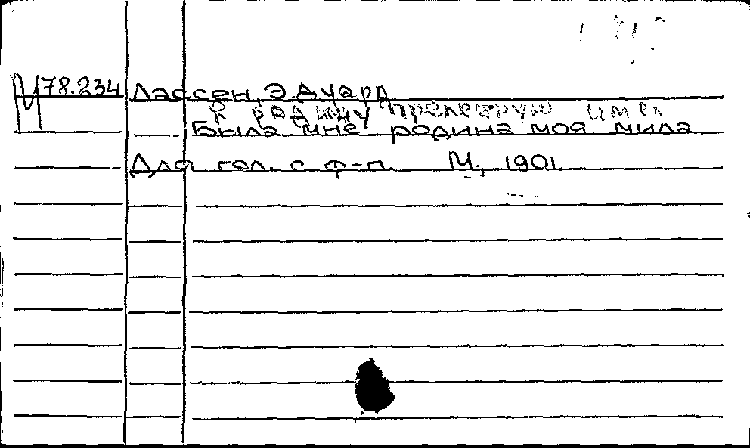 И 78.234 Лассен, Эдуард
Я родину прелестную имел
Была мне родина моя мила
Для гол. с ф-п. М., 1901.